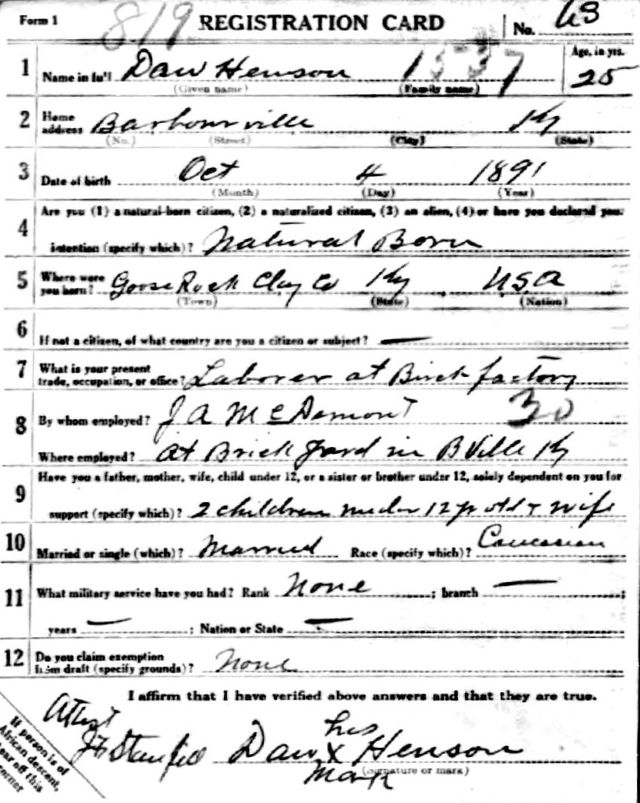 Form 1 819 REGISTRATION CARD No. 63
1 Name in full Daw Henson 1537 Age, in yrs.
(Given name) (Family name) 25
2 Home address Barbourville Ky
(No.) (Street) (City) (State)
3 Date of birth Oct 4 1891
(Month) (Day) (Year)
4 Are you (1) a natural-born citizen, (2) a naturalized citizen, (3) an alien, (4) or have you declared your
intention (specify which)? Natural Born
5 Where were you born? Goose Rock Clay Co Ky U.S.A
(Town) (State) (Nation)
6 If not a citizen, of what country are you a citizen or subject? —
7 What is your present trade, occupation, or office? Laborer at Brick factory
8 By whom employed? J. A McDermont 30
Where employed? at Brick yard in BVille Ky
9 Have you a father, mother, wife, child under 12, or a sister or brother under 12, solely dependent on you for
support (specify which)? 2 children under 12 yr old & wife
10 Married or single (which)? Married Race (specify which)? Caucasian
11 What military service have you had? Rank None ; branch — ;
years — ; Nation or State —
12 Do you claim exemption from draft (specify grounds)? None
I affirm that I have verified above answers and that they are true.
Attest his
Daw x Henson
Mark (Signature or mark)
If person is of
African descent,
tear off this
corner